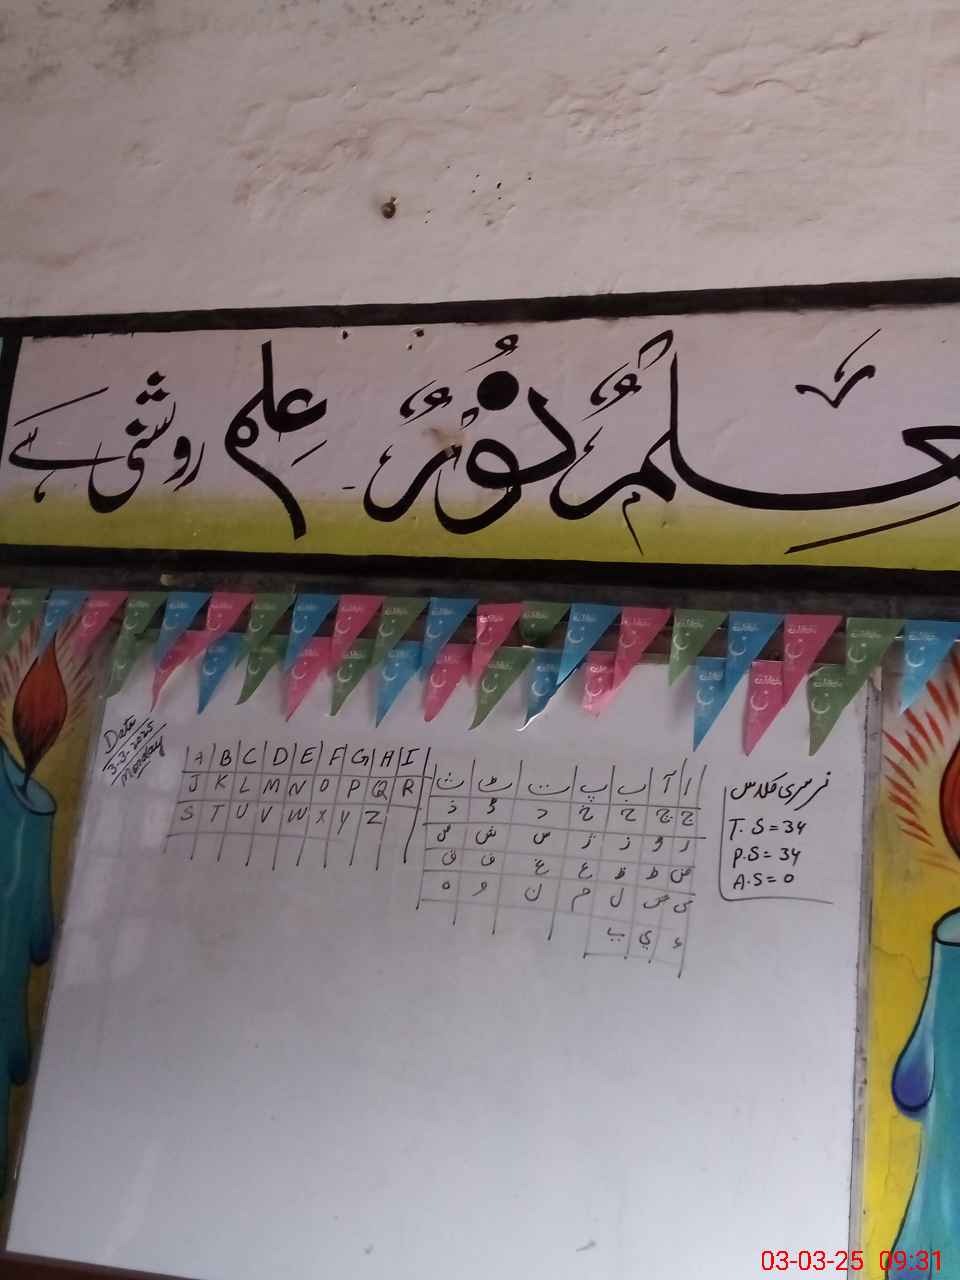 علمٌ نُورٌ عِلم روشنی ہے
Date
3-3-2025
Monday
A B C D E F G H I
J K L M N O P Q R
S T U V W X Y Z
ا آ ب پ ت ٹ ث
ج چ ح خ د ڈ ذ
ر ڑ ز ژ س ش ص
ض ط ظ ع غ ف ق
ک گ ل م ن و ہ
ء ی ے
نرسری کلاس
T.S=34
P.S=34
A.S=0
03-03-25 09:31